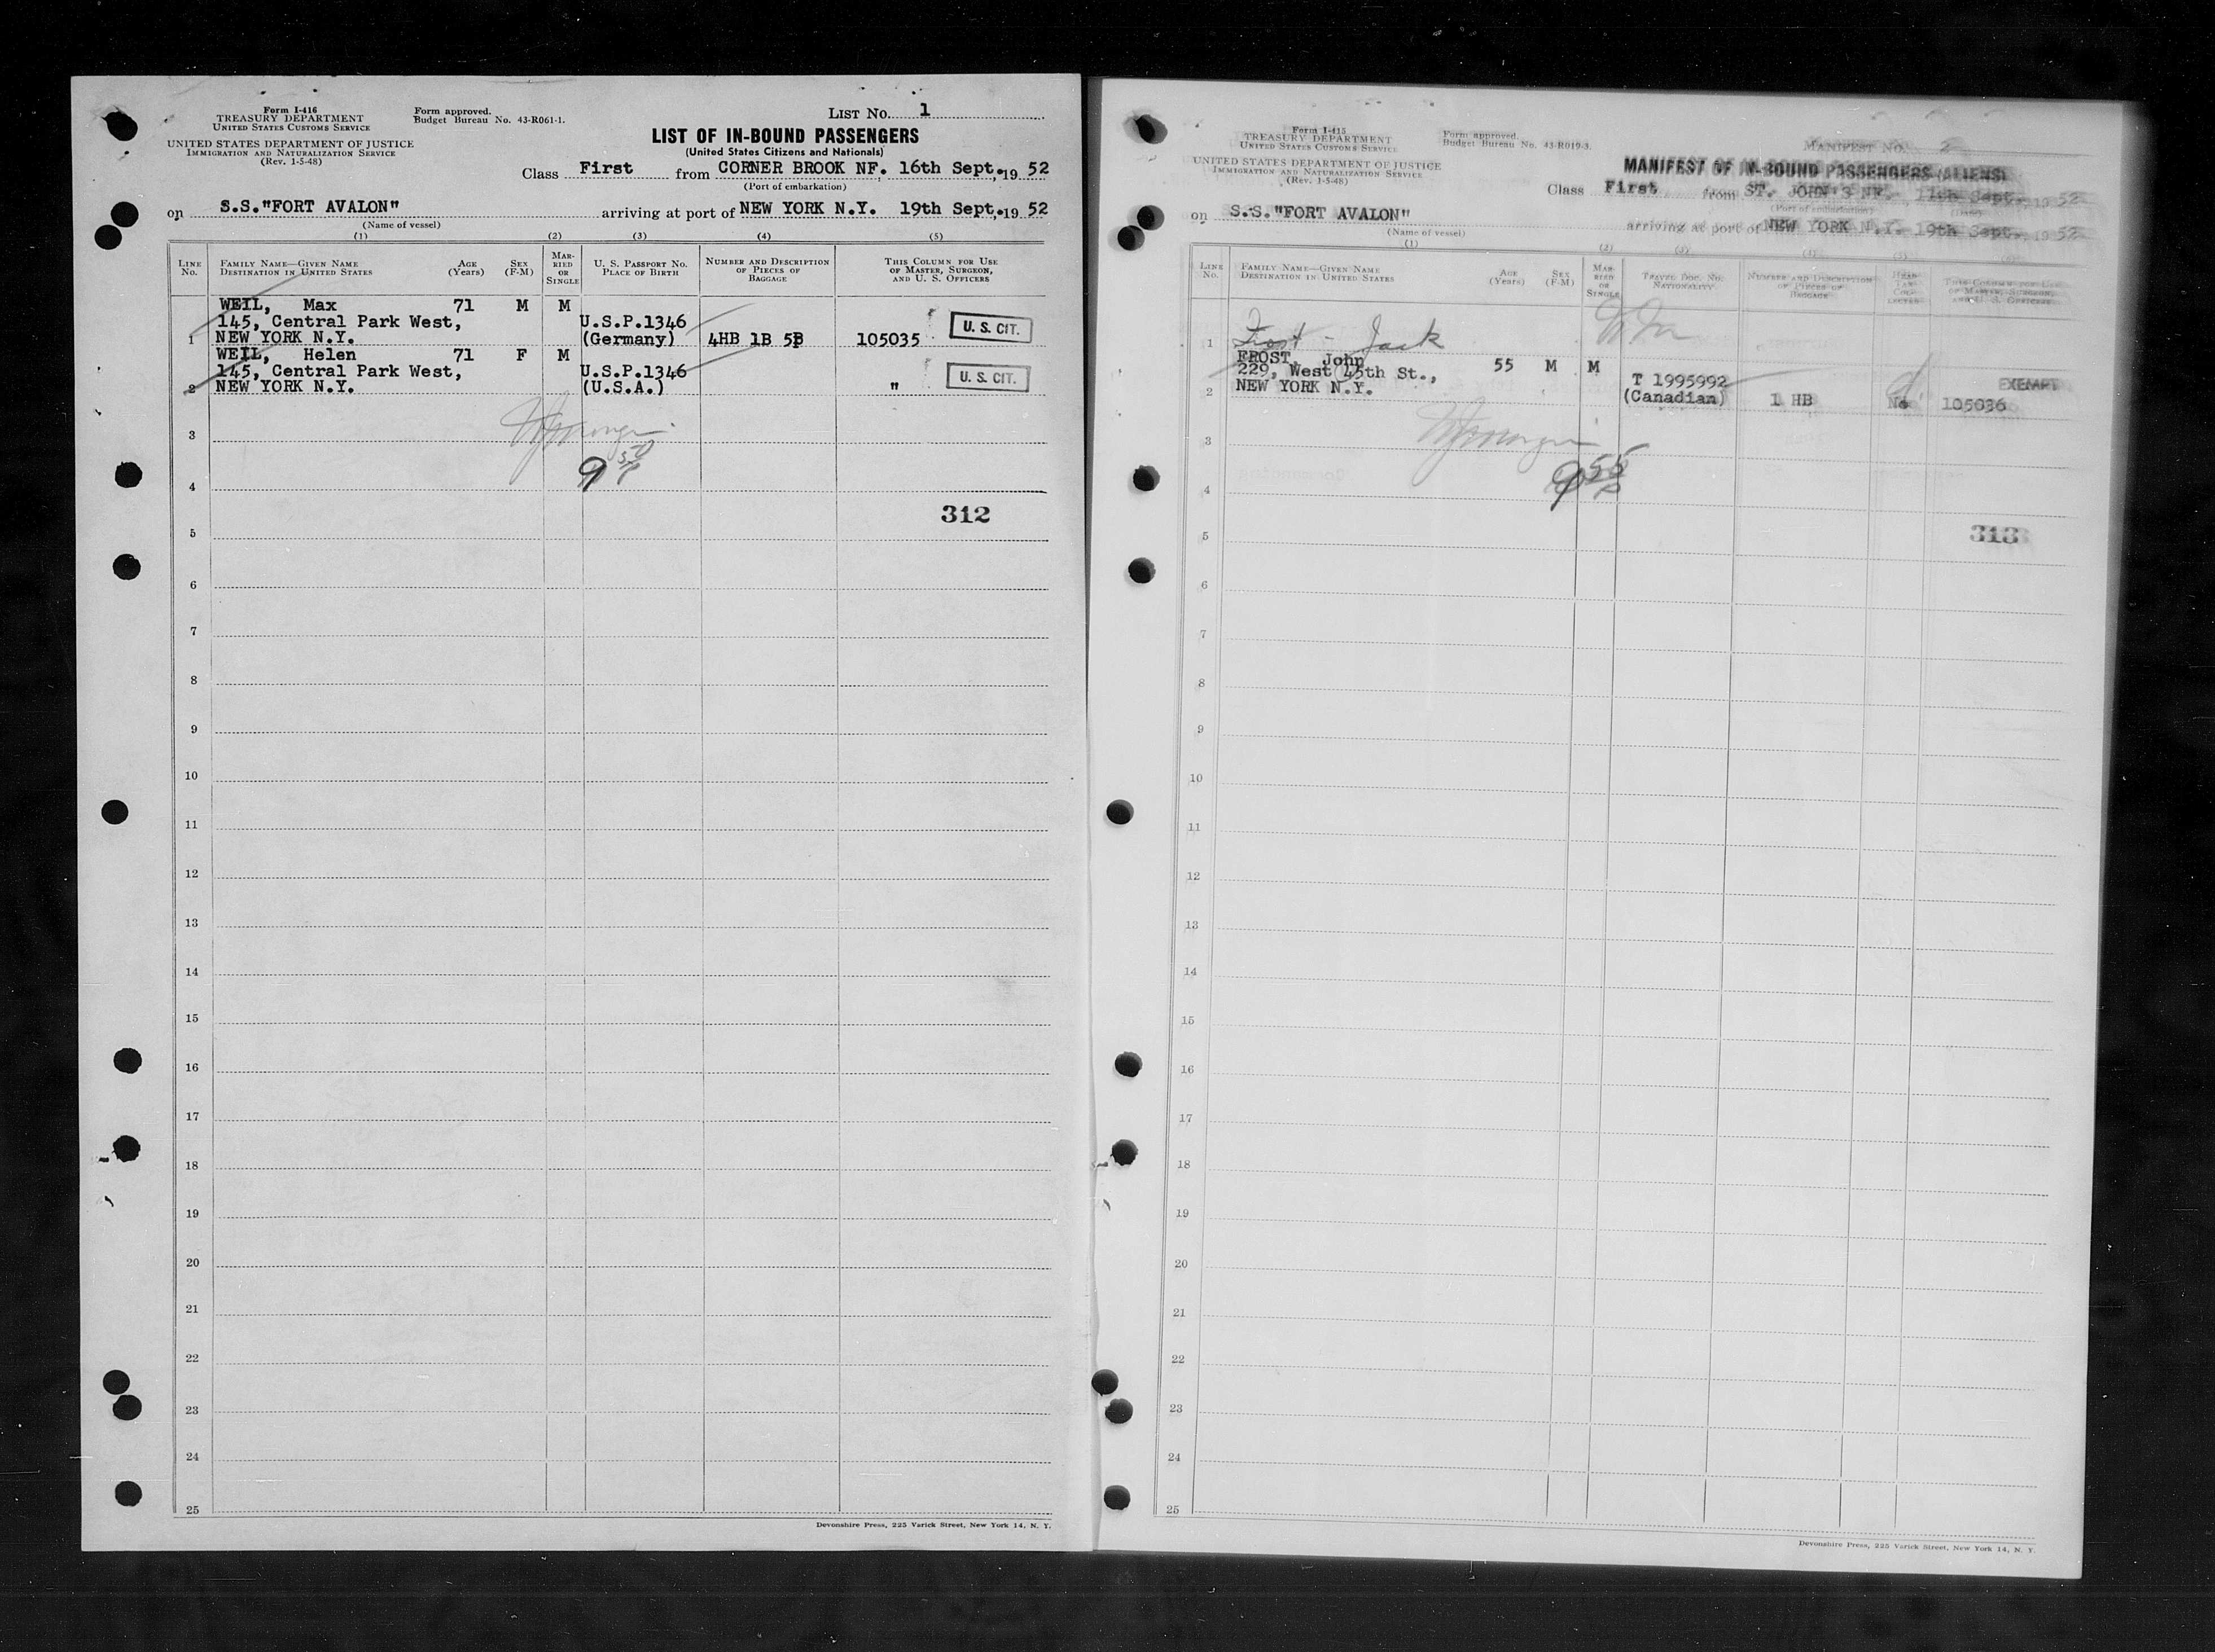 Form I-416
TREASURY DEPARTMENT
UNITED STATES CUSTOMS SERVICE
UNITED STATES DEPARTMENT OF JUSTICE
IMMIGRATION AND NATURALIZATION SERVICE
(Rev. 1-5-48)
Form approved.
Budget Bureau No. 43-R061-1.
LIST No. 1
LIST OF IN-BOUND PASSENGERS
(United States Citizens and Nationals)
Class First from CORNER BROOK NF. 16th Sept. 19 52
(Port of embarkation)
on S.S."FORT AVALON" arriving at port of NEW YORK N.Y. 19th Sept. 19 52
(Name of vessel)
(1) (2) (3) (4) (5)
LINE No. FAMILY NAME—GIVEN NAME DESTINATION IN UNITED STATES AGE (Years) SEX (F-M) MARRIED OR SINGLE U. S. PASSPORT No. PLACE OF BIRTH NUMBER AND DESCRIPTION OF PIECES OF BAGGAGE THIS COLUMN FOR USE OF MASTER, SURGEON, AND U. S. OFFICERS
WEIL, Max 71 M M
145, Central Park West, U.S.P.1346
1 NEW YORK N.Y. (Germany) 4HB 1B 5B 105035 U. S. CIT.
WEIL, Helen 71 F M
145, Central Park West, U.S.P.1346
2 NEW YORK N.Y. (U.S.A.) " U. S. CIT.
3
9 50 P
4
312
5
6
7
8
9
10
11
12
13
14
15
16
17
18
19
20
21
22
23
24
25
Devonshire Press, 225 Varick Street, New York 14, N. Y.
Form I-415
TREASURY DEPARTMENT
UNITED STATES CUSTOMS SERVICE
UNITED STATES DEPARTMENT OF JUSTICE
IMMIGRATION AND NATURALIZATION SERVICE
(Rev. 1-5-48)
Form approved.
Budget Bureau No. 43-R019-3.
MANIFEST No. 2
MANIFEST OF IN-BOUND PASSENGERS (ALIENS)
Class First from ST. JOHN'S NF. 11th Sept. 19 52
(Port of embarkation) (Date)
on S.S."FORT AVALON" arriving at port of NEW YORK N.Y. 19th Sept. 19 52
(Name of vessel)
(1) (2) (3) (4) (5) (6)
LINE No. FAMILY NAME—GIVEN NAME DESTINATION IN UNITED STATES AGE (Years) SEX (F-M) MARRIED OR SINGLE TRAVEL DOC. No. NATIONALITY NUMBER AND DESCRIPTION OF PIECES OF BAGGAGE HEAD TAX COLLECTED THIS COLUMN FOR USE OF MASTER, SURGEON, AND U. S. OFFICERS
1 Frost - Jack
FROST, John 55 M M
229, West 45th St., T 1995992 EXEMPT
2 NEW YORK N.Y. (Canadian) 1 HB No 105036
3
9 55 P
4
313
5
6
7
8
9
10
11
12
13
14
15
16
17
18
19
20
21
22
23
24
25
Devonshire Press, 225 Varick Street, New York 14, N. Y.